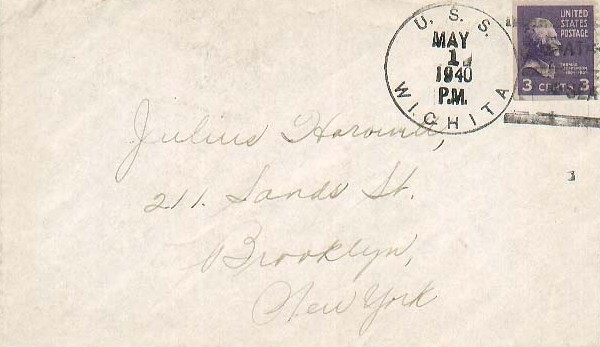 U. S. S.
MAY
1
1940
P.M.
WICHITA
UNITED
STATES
POSTAGE
THOMAS
JEFFERSON
3 CENTS 3
Julius
211. Sands St.
Brooklyn,
New York